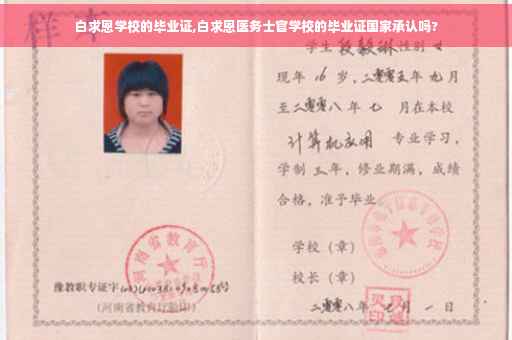 白求恩学校的毕业证,白求恩医务士官学校的毕业证国家承认吗?
样本
学生 段毅琳 性别 女
现年 16 岁，二零零五年 九月
至二零零八年 七 月在本校
计算机应用 专业学习，
学制 三 年，修业期满，成绩
合格，准予毕业
学校（章）
校长（章）
二零零八年 七 月 一 日
河南省教育厅
豫教职专证字
（河南省教育厅验印）